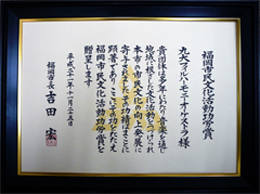 福岡市民文化活動功労賞
九大フィルハーモニーオーケストラ様
貴団体は多年にわたり音楽を通じ
地域に根ざした文化活動をつづけられ
本市の市民文化の向上発展に
寄与されました その功績はまことに
顕著でありここにその功をたたえ
福岡市民文化活動功労賞を
贈呈します
平成二十一年十一月二十五日
福岡市長 吉田 宏